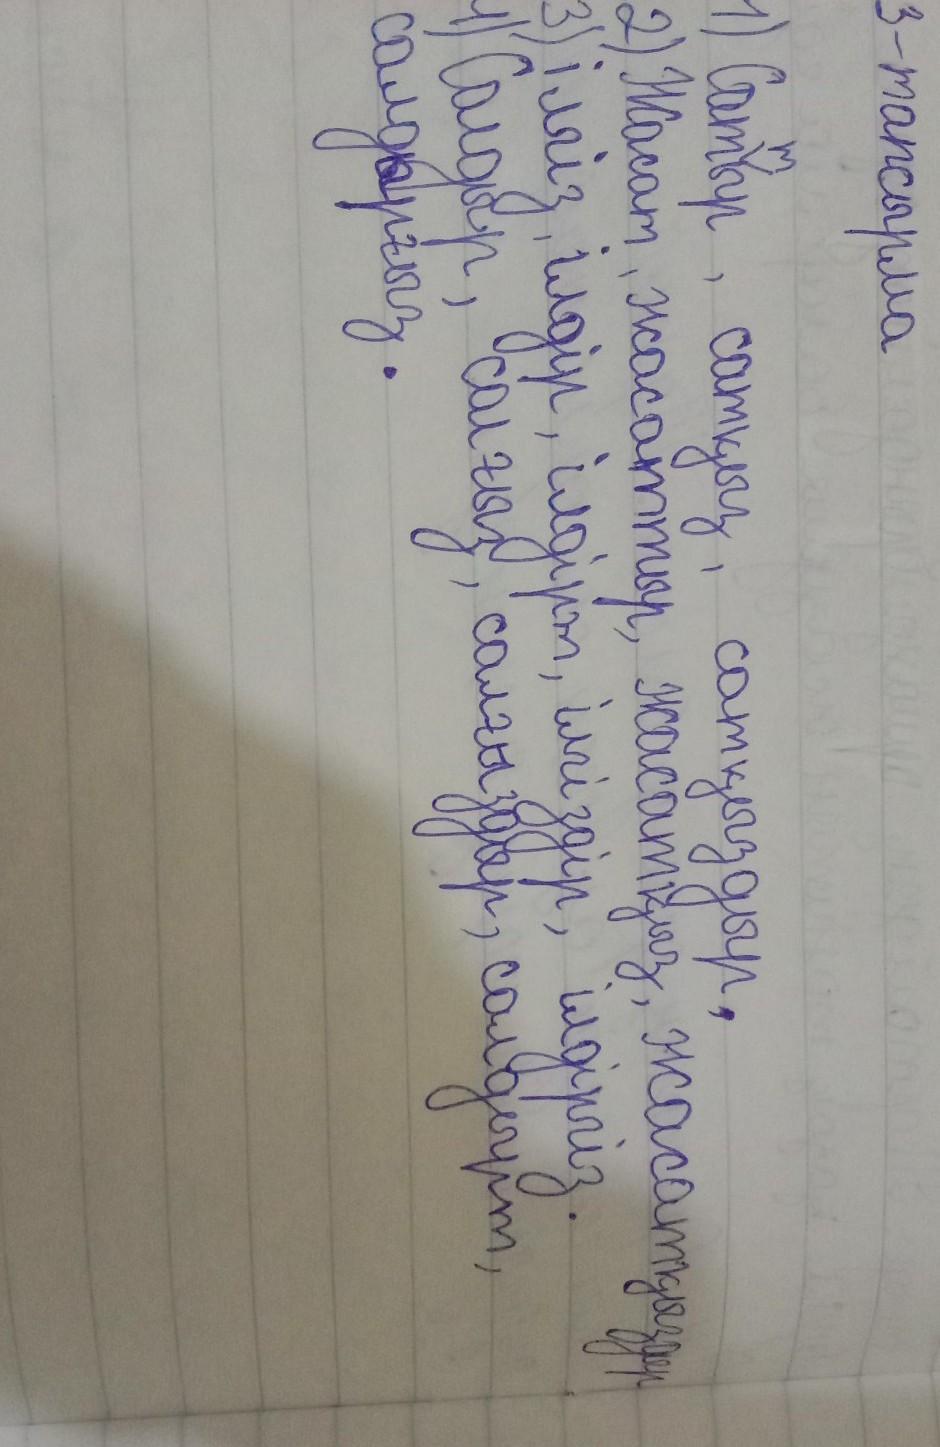 3-тапсырма
1) Саттыр, сатқыз, сатқыздыр,
2) Жасат, жасаттыр, жасатқыз, жасатқыздыр
3) ілгіз, ілдір, ілдірт, ілгіздір, ілдіргіз.
4) Салдыр, салғыз, салғыздыр, салдырт,
салдырғыз.